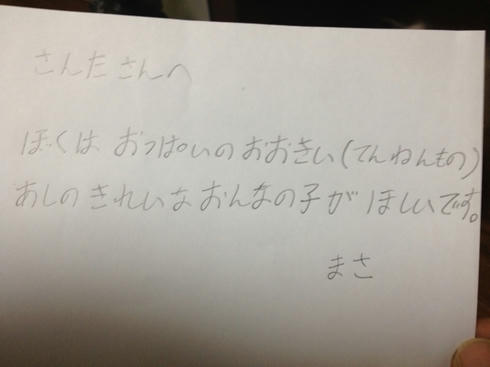 さんたさんへ
ぼくは、おっぱいのおおきい(てんねんもの)
あしのきれいなおんなの子がほしいです。
まさ